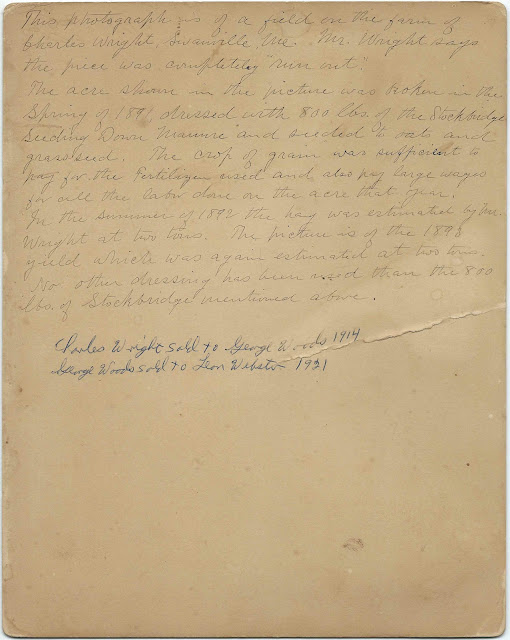 This photograph is of a field on the farm of
Charles Wright, Swanville, Me. Mr. Wright says
the piece was completely "run out".
The acre shown in the picture was broken in the
Spring of 1891 dressed with 800 lbs. of the Stockbridge
Seeding Down Manure and seeded to oats and
grass seed. The crop of grain was sufficient to
pay for the Fertilizer used and also pay large wages
for all the labor done on the acre that year.
In the summer of 1892 the hay was estimated by Mr.
Wright at two tons. The picture is of the 1893
yield which was again estimated at two tons.
No other dressing has been used than the 800
lbs. of Stockbridge mentioned above.
Charles Wright sold to George Woods 1914
George Woods sold to Leon Webster 1921